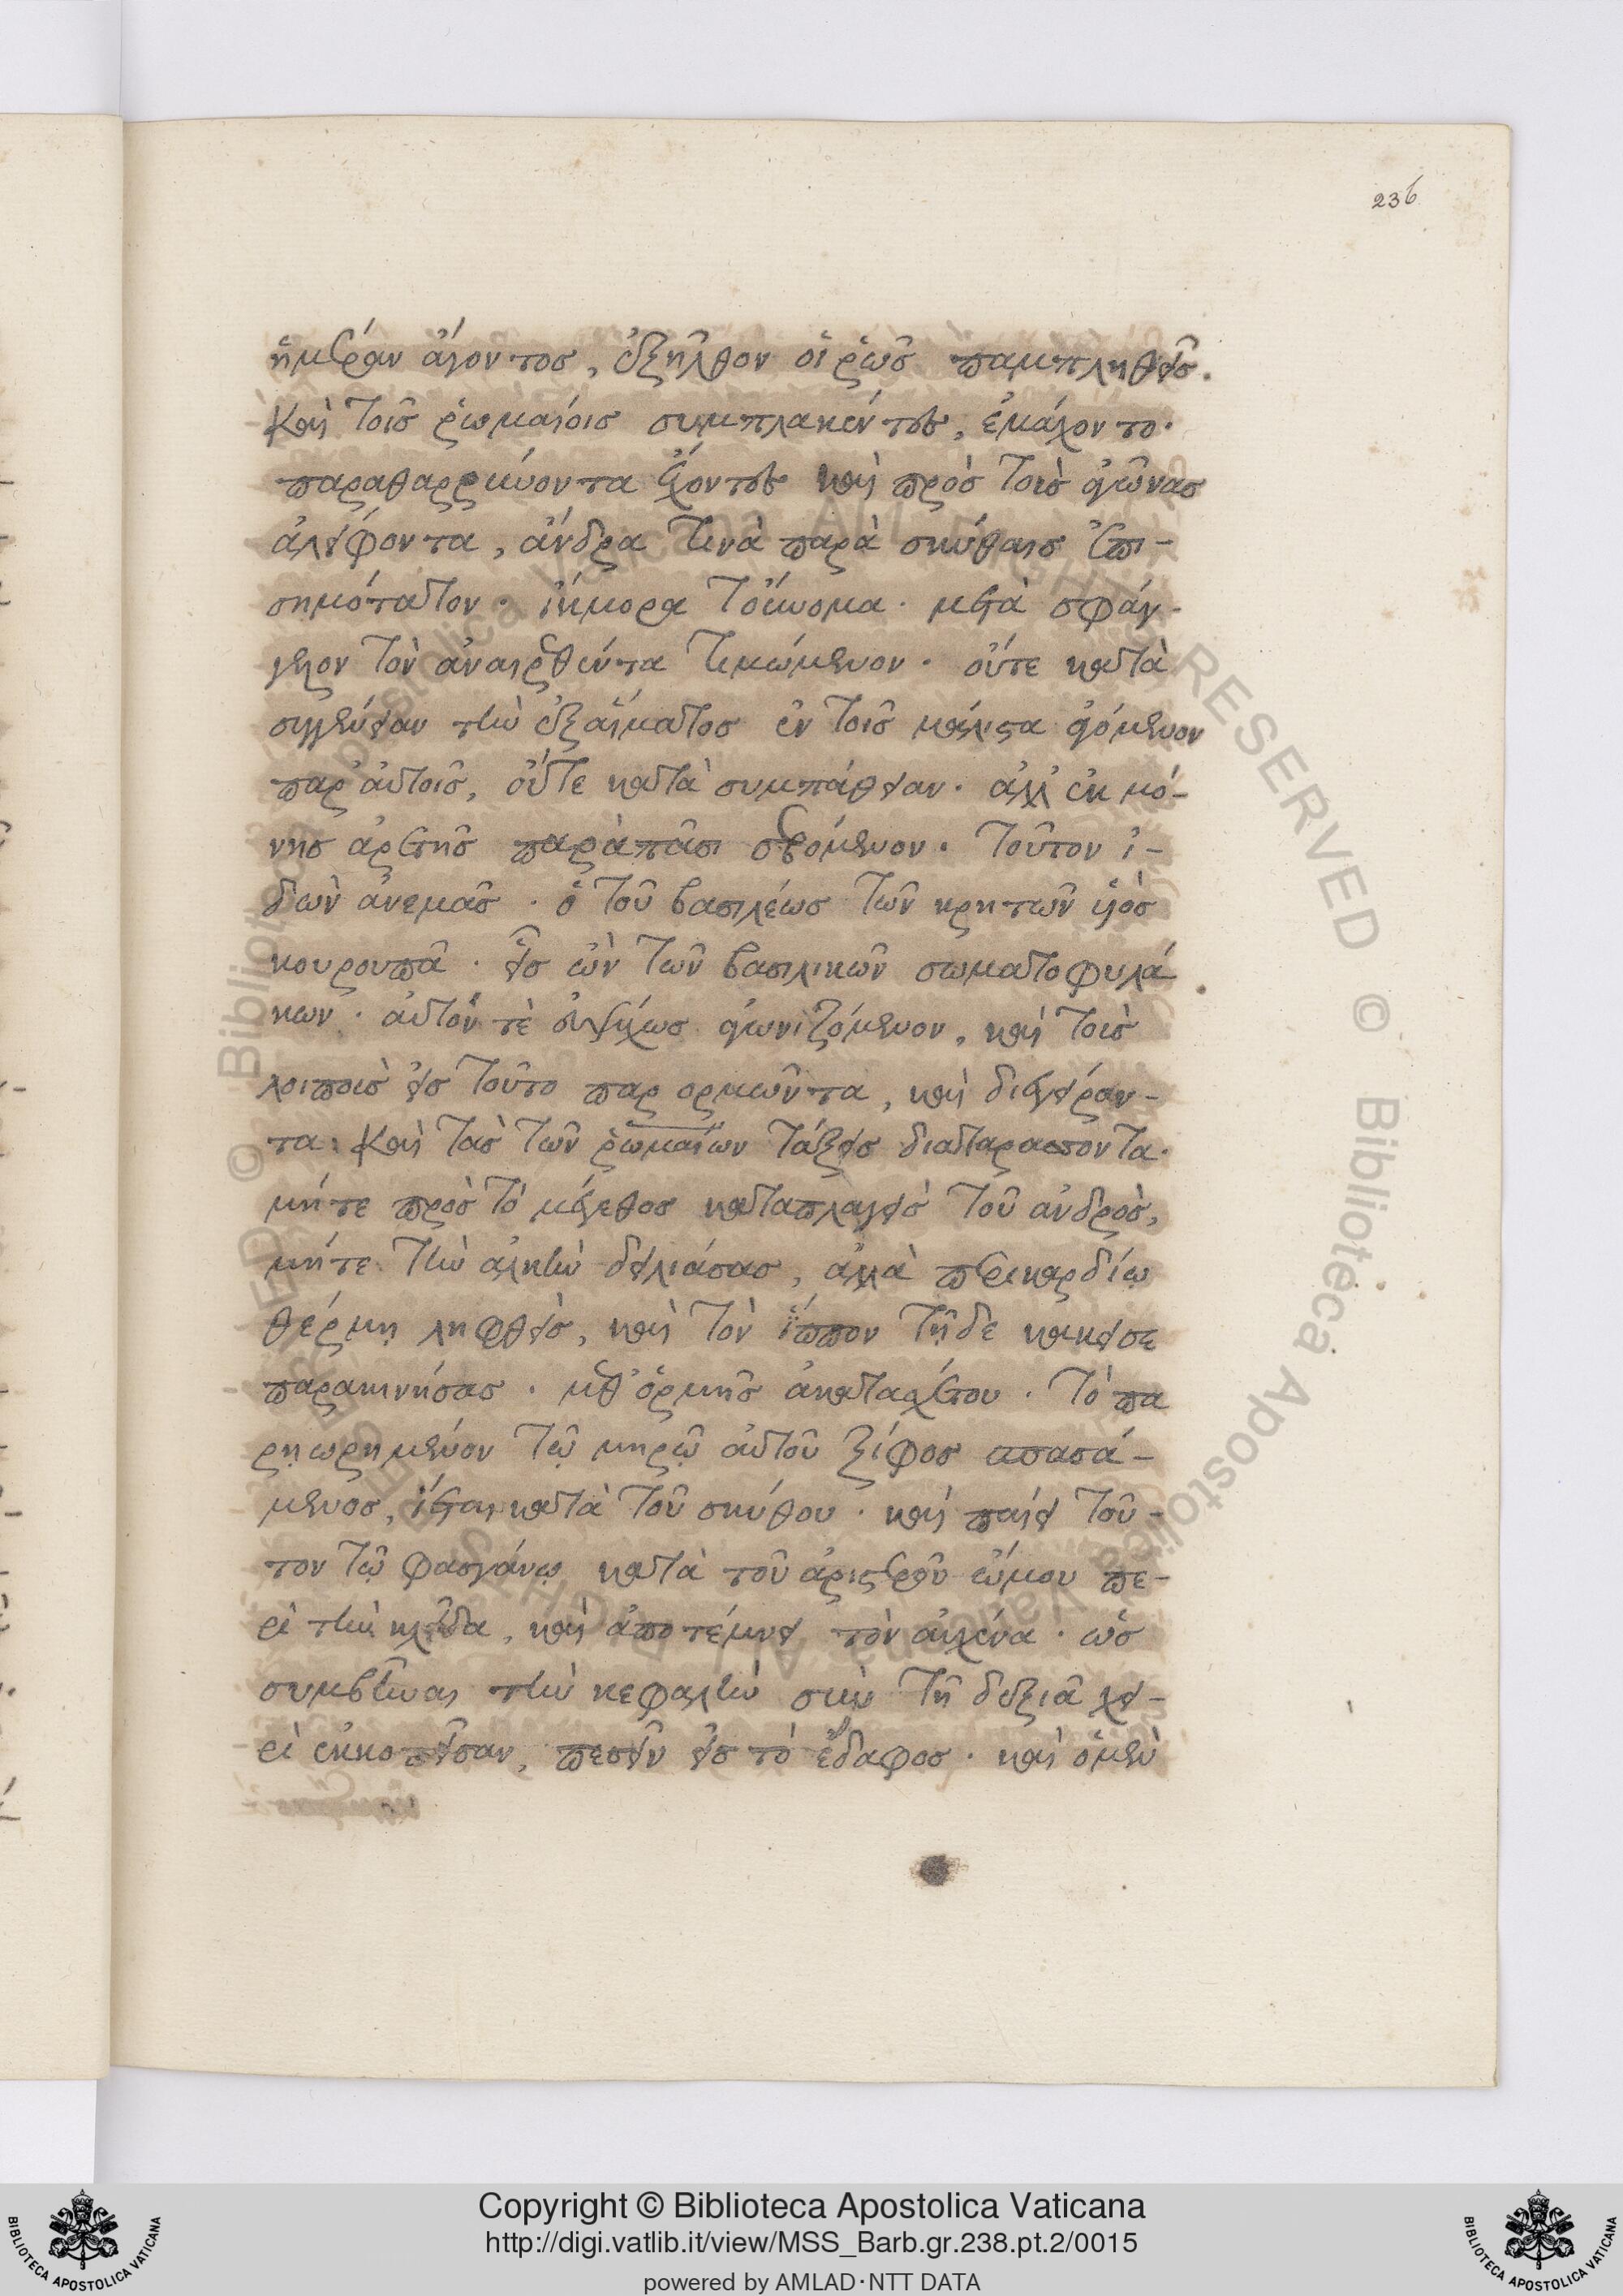 236
ἡμέραν ἄγοντος, ἐξῆλθον οἱ ῥῶς παμπληθεῖς.
καὶ τοῖς ῥωμαίοις συμπλακέντες, ἐμάχοντο.
παραθαρρύνοντα ἔχοντες καὶ πρὸς τοὺς ἀγῶνας
ἀλείφοντα, ἄνδρα τινὰ παρὰ σκύθαις ἐπι-
σημότατον. ἴκμορα τοὔνομα. μετὰ σφάγ-
γελον τὸν ἀναιρεθέντα τιμώμενον. οὔτε κατὰ
συγγένειαν τὴν ἐξαἵματος ἐν τοῖς μάλιστα ἀγόμενον
παρ' αὐτοῖς, οὔτε κατὰ συμπάθειαν. ἀλλ' ἐκ μό-
νης ἀρετῆς παρὰ πᾶσι σεβόμενον. τοῦτον ἰ-
δὼν ἀνεμᾶς. ὁ τοῦ βασιλέως τῶν κρητῶν υἱὸς
κουρουπᾶ. εἷς ὢν τῶν βασιλικῶν σωματοφυλά
κων. αὐτόν τε εὐψύχως ἀγωνιζόμενον, καὶ τοὺς
λοιποὺς εἰς τοῦτο παρορμῶντα, καὶ διεγείροντα
τα. καὶ τὰς τῶν ῥωμαίων τάξεις διαταράττοντα.
μήτε πρὸς τὸ μέγεθος καταπλαγεὶς τοῦ ἀνδρὸς,
μήτε τὴν ἀλκὴν δειλιάσας, ἀλλὰ περικαρδίῳ
θέρμῃ ληφθεὶς, καὶ τὸν ἵππον τῇδε κἀκεῖσε
παρακινήσας. μεθ' ὁρμῆς ἀκατασχέτου. τὸ πα
ρῃωρημένον τῷ μηρῷ αὐτοῦ ξίφος σπασά-
μενος, ἵεται κατὰ τοῦ σκύθου. καὶ παίει τοῦ-
τον τῷ φασγάνῳ κατὰ τοῦ ἀριστεροῦ ὤμου πε-
ρὶ τὴν κλεῖδα, καὶ ἀποτέμνει τὸν αὐχένα. ὡς
συμβῆναι τὴν κεφαλὴν σὺν τῇ δεξιᾷ χει-
ρὶ ἐκκοπεῖσαν, πεσεῖν εἰς τὸ ἔδαφος. καὶ ὁ μὲν
Copyright © Biblioteca Apostolica Vaticana
http://digi.vatlib.it/view/MSS_Barb.gr.238.pt.2/0015
powered by AMLAD·NTT DATA
BIBLIOTECA APOSTOLICA VATICANA
BIBLIOTECA APOSTOLICA VATICANA